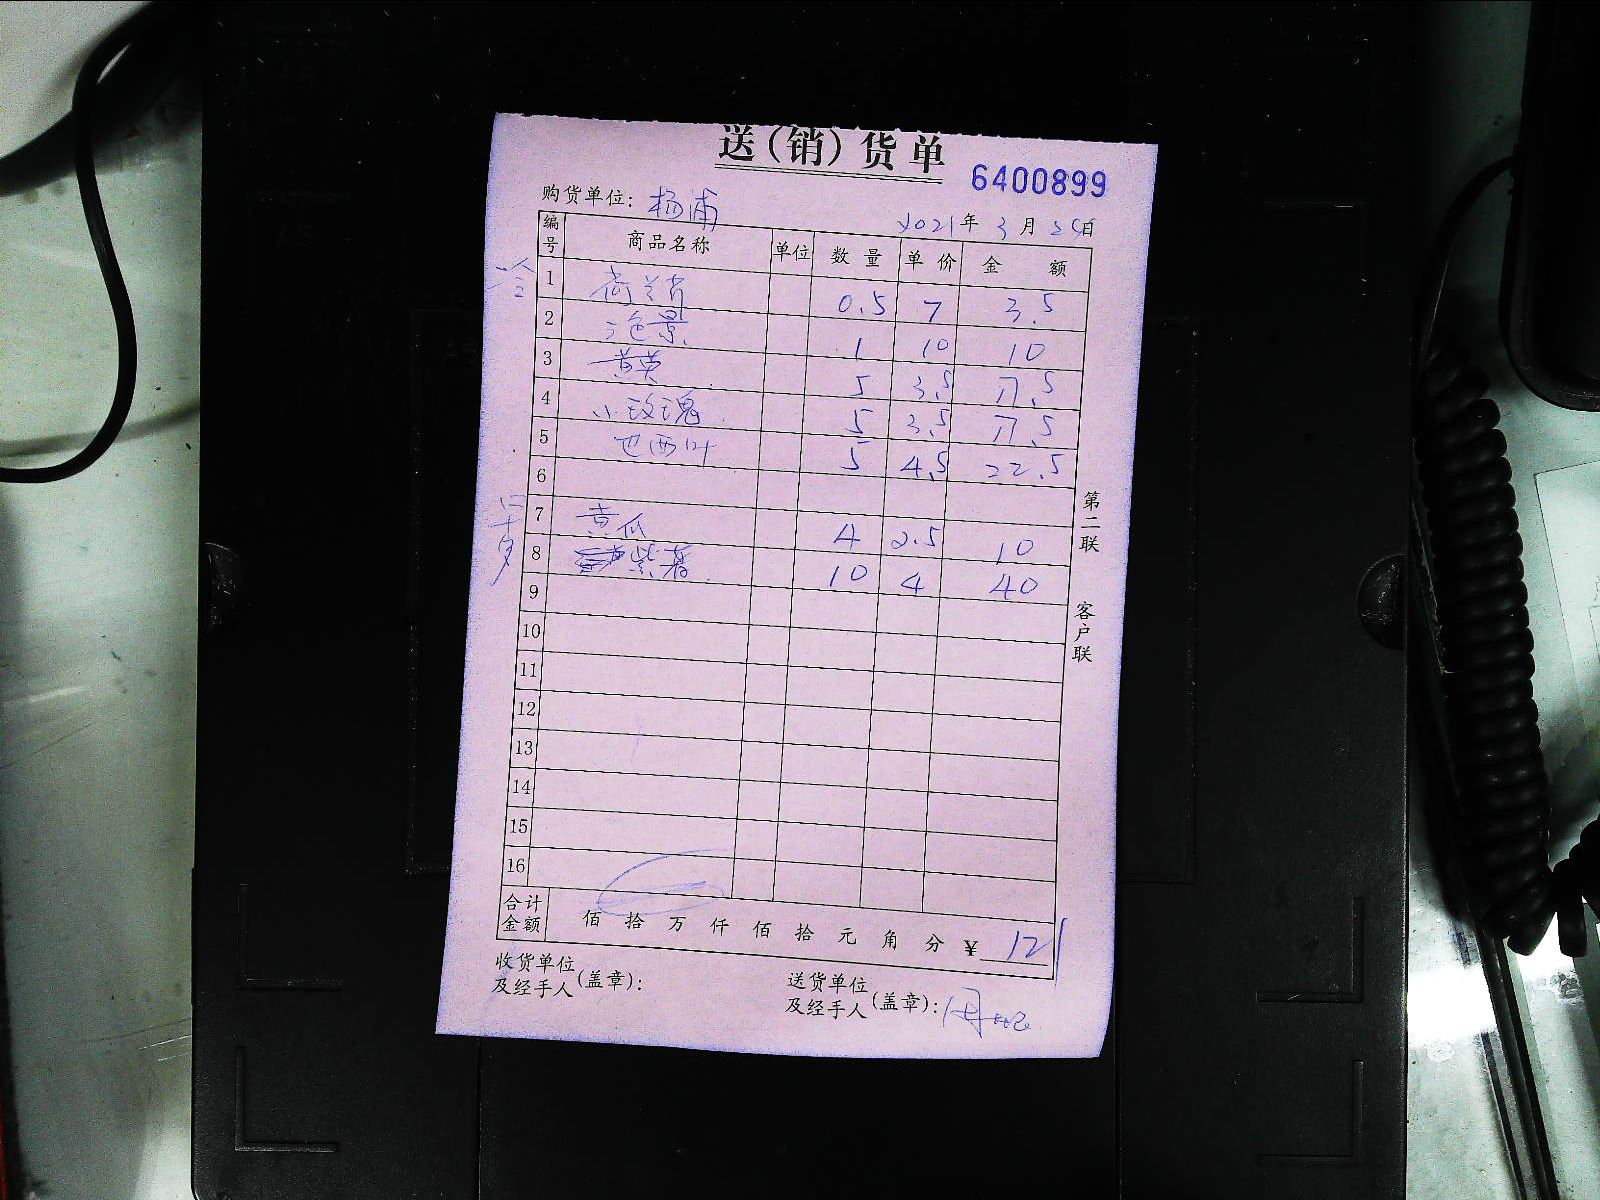 送(销)货单
6400899
购货单位: 杨浦
2021年 3月 25日
编号 商品名称 单位 数量 单价 金额
1 荷兰芹 0.5 7 3.5
2 三色堇 1 10 10
3 黄英 5 3.5 17.5
4 小玫瑰 5 3.5 17.5
5 巴西叶 5 4.5 22.5
6
7 黄瓜 4 2.5 10
8 紫薯 10 4 40
9
10
11
12
13
14
15
16
第二联 客户联
合计金额 佰 拾 万 仟 佰 拾 元 角 分 ¥ 121
收货单位及经手人(盖章):
送货单位及经手人(盖章):